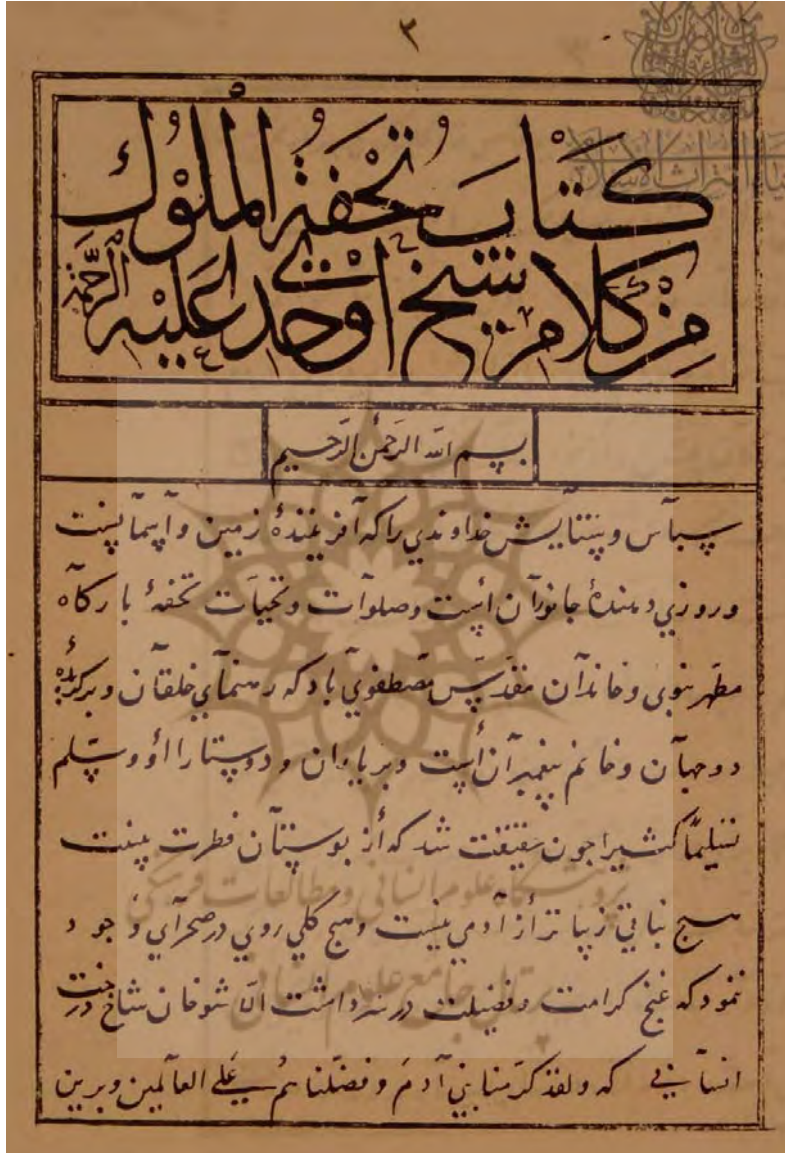 ٣
كتاب تحفة الملوك
من كلام شيخ اوحدى عليه الرحمة
بسم الله الرحمن الرحيم
سپاس و ستایش خداوندي را كه آفرینندهٔ زمین و آسمانست
و روزي دهندهٔ جانوران است و صلوات و تحیات تحفهٔ بارگاه
مطهر نبوى و خاندان مقدس مصطفوي باد كه رهنماي خلقان و برگزیدهٔ
دو جهان و خاتم پیغمبران است و بر یاران و دوستاران او و سلم
تسلیمًا كثیرا چون حقیقت شد كه از بوستان فطرت
هیچ نباتي زیباتر از آدمي نیست و هیچ گلي روي در صحراي وجود
ننمود كه غنچ كرامت و فضیلت در سر داشت الا شوخان شاخ درخت
انساني كه و لقد كرمنا بني آدم و فضلناهم علے العالمین و برین
پژوهشگاه علوم انسانی و مطالعات فرهنگی
پرتال جامع علوم انسانی